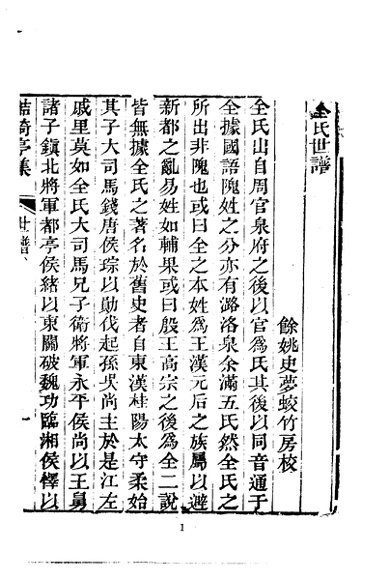 全氏世譜
餘姚史夢蛟竹房校
全氏出自周官泉府之後以官爲氏其後以同音通于
全據國語隗姓之分亦有潞洛泉余滿五氏然全氏之
所出非隗也或曰全之本姓爲王漢元后之族屬以避
新都之亂易姓如輔果或曰殷王高宗之後爲全二說
皆無據全氏之著名於舊史者自東漢桂陽太守柔始
其子大司馬錢唐侯琮以勛伐起孫吳尚主於是江左
戚里莫如全氏大司馬兄子衛將軍永平侯尚以王舅
諸子鎮北將軍都亭侯緒以東關破魏功臨湘侯懌以
鮚埼亭集
世譜
1